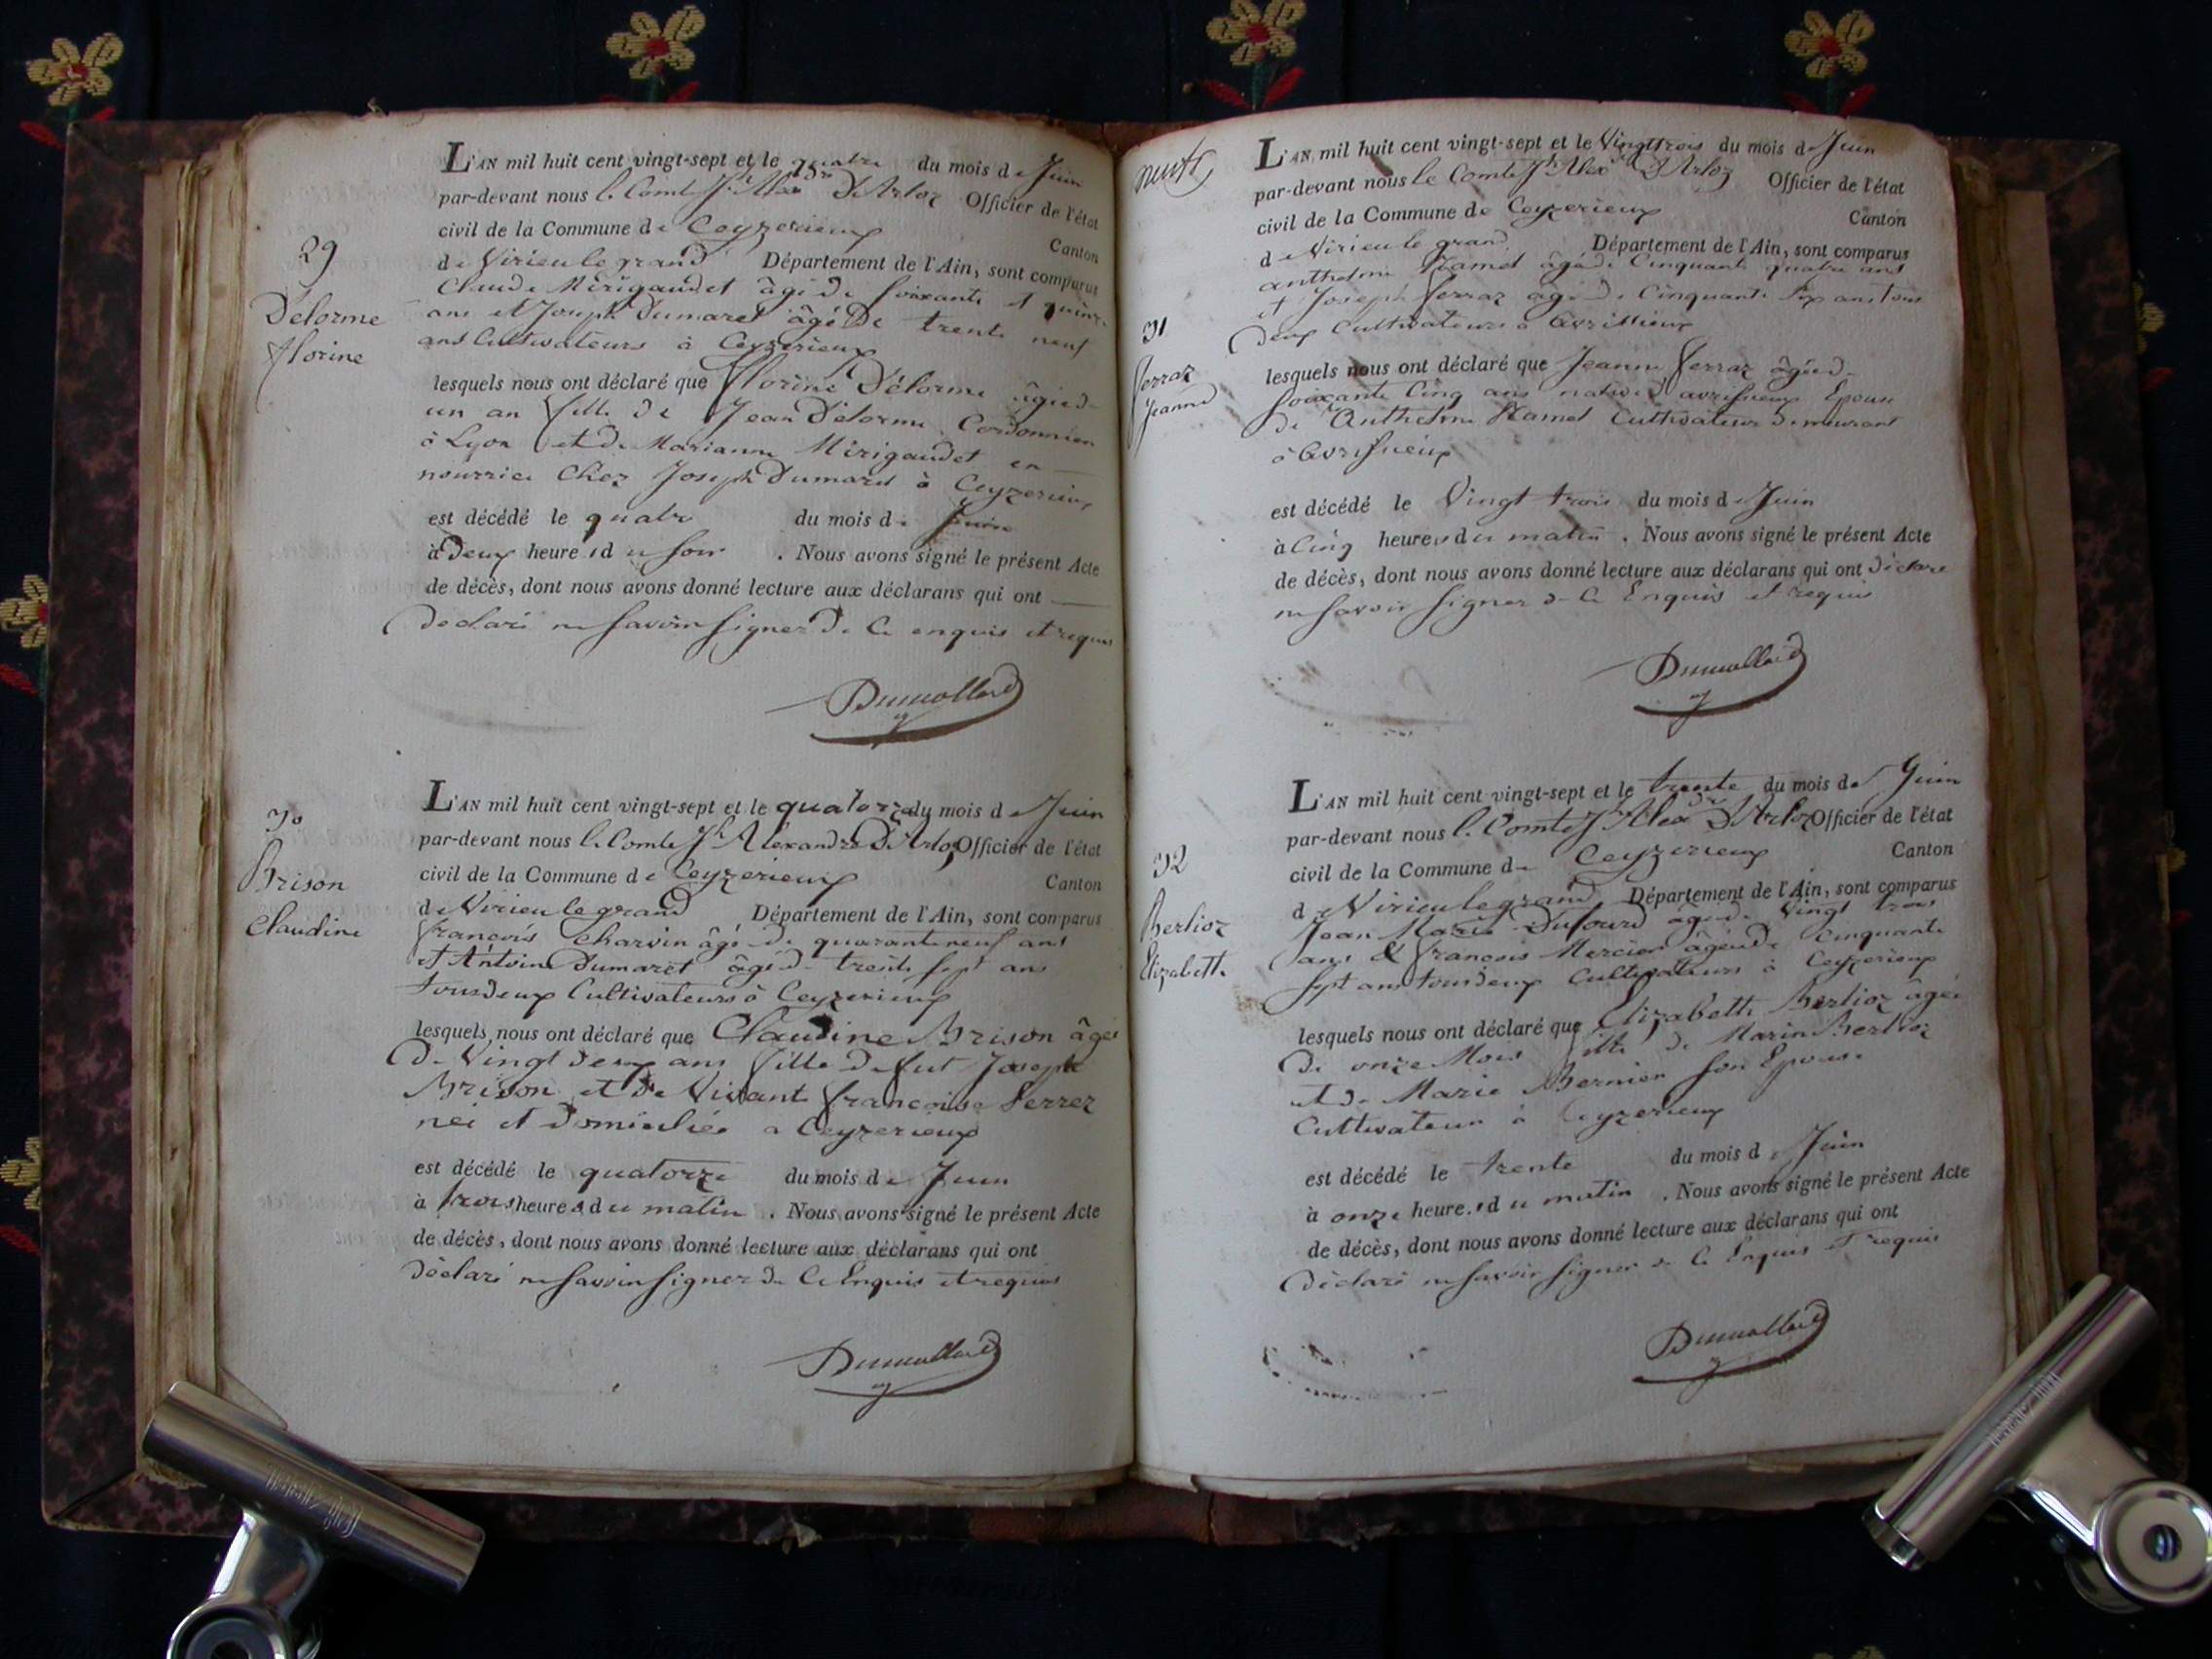 29
Delorme
florine
L'AN mil huit cent vingt-sept et le quatre du mois de Juin
par-devant nous le Comte Jh Alexdre D'Arloz Officier de l'état
civil de la Commune de Ceyzerieux Canton
de Virieu le grand Département de l'Ain, sont comparus
Claude Mérigaudet âgé de soixante et quinze
ans et Joseph Dumaret âgé De trente neuf
ans Cultivateurs à Ceyzerieux
lesquels nous ont déclaré que florine Délorme âgée d
un an fille de Jean Délorme Cordonnier
à Lyon et de Marianne Mérigaudet en
nourrice Chez Joseph Dumaret à Ceyzerieux
est décédé le quatre du mois de Juin
à Deux heures du soir . Nous avons signé le présent Acte
de décès, dont nous avons donné lecture aux déclarans qui ont
Declaré ne savoir signer De Ce enquis et requis
Dumollard
30
Brison
Claudine
L'AN mil huit cent vingt-sept et le quatorze du mois de Juin
par-devant nous le Comte Jh Alexandre D'Arloz Officier de l'état
civil de la Commune de Ceyzerieux Canton
de Virieu le grand Département de l'Ain, sont comparus
francois Charvin âgé de quarante neuf ans
et Antoine Dumaret âgé de trente sept ans
tous deux Cultivateurs à Ceyzerieux
lesquels nous ont déclaré que Claudine Brison âgée
De Vingt deux ans fille De fut Joseph
Brison et De Vivante francoise Perrez
née et domiciliée a Ceyzerieux
est décédé le quatorze du mois de Juin
à trois heures du matin . Nous avons signé le présent Acte
de décès, dont nous avons donné lecture aux déclarans qui ont
Déclaré ne savoir signer De Ce Enquis et requis
Dumollard
neuf
31
ferraz
Jeanne
L'AN mil huit cent vingt-sept et le Vingt trois du mois de Juin
par-devant nous le Comte Jh Alexdre D'Arloz Officier de l'état
civil de la Commune de Ceyzerieux Canton
de Virieu le grand Département de l'Ain, sont comparus
anthelme Hamel âgé de Cinquante quatre ans
et Joseph ferraz âgé de Cinquante six ans tous
Deux Cultivateurs à
lesquels nous ont déclaré que Jeanne ferraz âgée d
soixante Cinq ans native d' Epouse
de Anthelme Hamel Cultivateur demeurant
à
est décédé le Vingt trois du mois de Juin
à Cinq heures du matin . Nous avons signé le présent Acte
de décès, dont nous avons donné lecture aux déclarans qui ont Déclaré
ne savoir signer de Ce Enquis et requis
Dumollard
32
Berlioz
Elizabeth
L'AN mil huit cent vingt-sept et le trente du mois de Juin
par-devant nous le Comte Jh Alexdre D'Arloz Officier de l'état
civil de la Commune de Ceyzerieux Canton
de Virieu le grand Département de l'Ain, sont comparus
Jean Marie Dufourd âgé de Vingt trois
ans & francois Mercier âgé de Cinquante
sept ans tous deux Cultivateurs à Ceyzerieux
lesquels nous ont déclaré que Elizabeth Berlioz âgée
De onze Mois fille de Marin Berlioz
et de Marie Bernier son Epouse
Cultivateur à Ceyzerieux
est décédé le trente du mois de Juin
à onze heures du matin . Nous avons signé le présent Acte
de décès, dont nous avons donné lecture aux déclarans qui ont
Déclaré ne savoir signer de Ce Enquis et requis
Dumollard